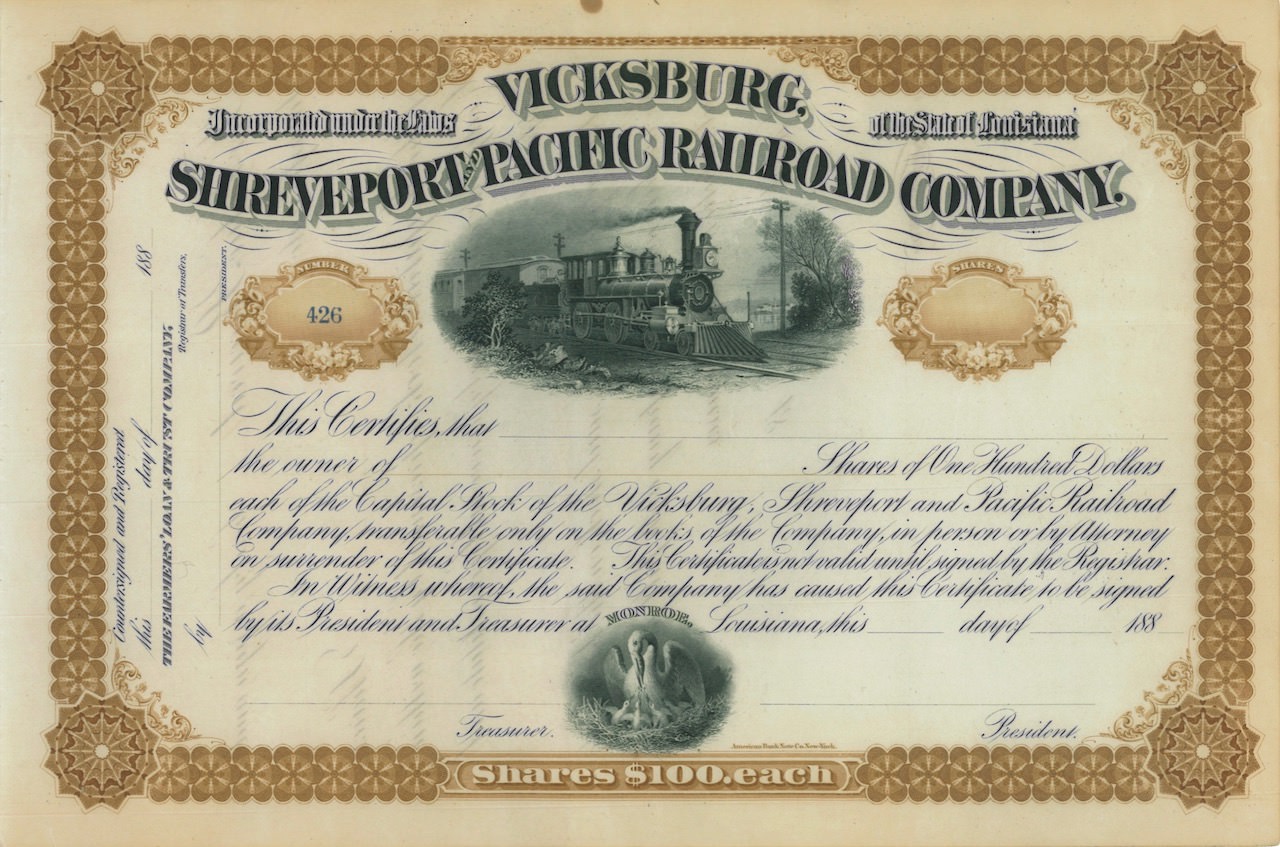 VICKSBURG,
Incorporated under the Laws of the State of Louisiana
SHREVEPORT AND PACIFIC RAILROAD COMPANY.
NUMBER
426
SHARES
This Certifies, that
the owner of Shares of One Hundred Dollars
each of the Capital Stock of the Vicksburg, Shreveport and Pacific Railroad
Company, transferable only on the books of the Company, in person or by Attorney
on surrender of this Certificate. This Certificate is not valid until signed by the Registrar.
In Witness whereof, the said Company has caused this Certificate to be signed
by its President and Treasurer at MONROE, Louisiana, this day of 188
Treasurer.
President.
American Bank Note Co. New-York.
Shares $100. each
Countersigned and Registered
this day of 188
THE FARMERS' LOAN & TRUST COMPANY,
Registrar of Transfers,
by PRESIDENT.